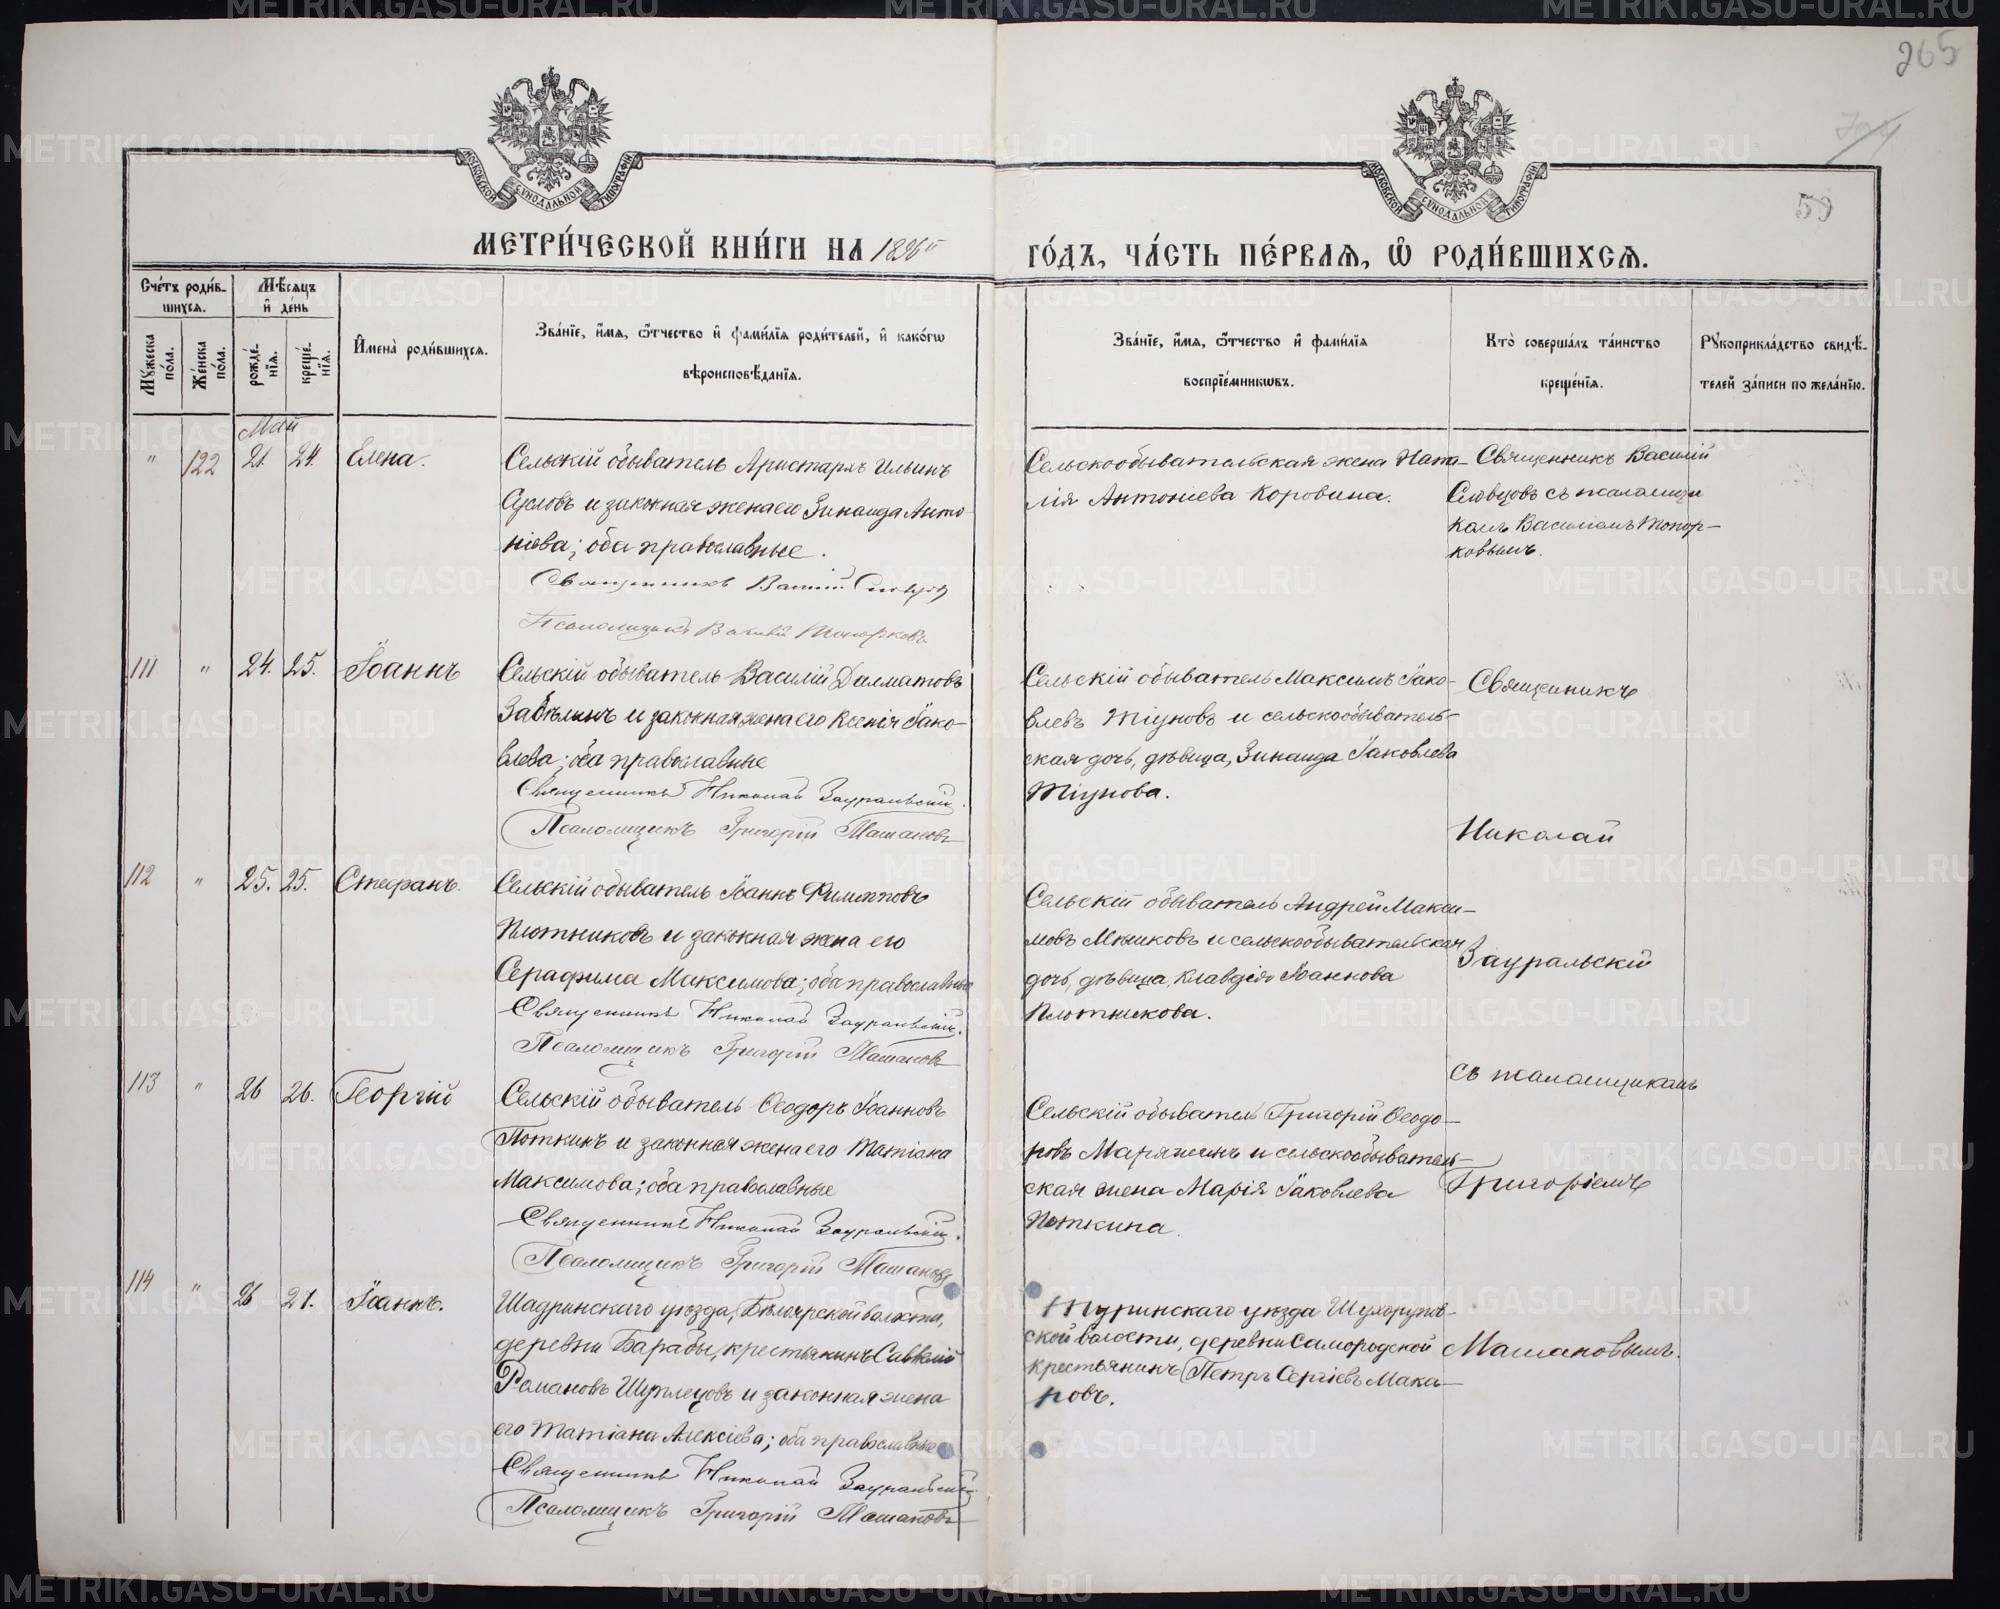 265
59
МОСКОВСКОЙ СѴНОДАЛЬНОЙ ТИПОГРАФІИ
МОСКОВСКОЙ СѴНОДАЛЬНОЙ ТИПОГРАФІИ
МЕТРИ́ЧЕСКОЙ КНИ́ГИ НА 1896й ГО́ДЪ, ЧА́СТЬ ПЕ́РВАЯ, Ѡ РОДИ́ВШИХСЯ.
Сче́тъ роди́в-
шихся.
Мꙋжеска по́ла.
Же́нска по́ла.
Мѣ́сяцъ
и́ де́нь
рожде́-
нїя.
креще́-
нїя.
И́мена̀ роди́вшихся.
Зва́нїе, и́мя, ѻ́тчество и́ фами́лїя роди́телей, и́ како́гѡ
вѣроисповѣ́данїя.
Зва́нїе, и́мя, ѻ́тчество и́ фами́лїя
воспрїе́мникѡвъ.
Кто̀ соверша́лъ та́инство
креще́нїя.
Рꙋкоприкла́дство свидѣ́-
телей за́писи по жела́нїю.
Май
" 122 21. 24. Елена.
Сельскій обыватель Аристархъ Ильинъ
Сусловъ и законная жена его Зинаида Анто-
ніева; оба православные.
Священникъ Василій Словцовъ
Псаломщикъ Василій Топорковъ
Сельскообывательская жена Ната-
лія Антоніева Коровина.
Священникъ Василій
Словцовъ съ псаломщи
комъ Василіемъ Топор-
ковымъ.
111 " 24. 25. Іоаннъ
Сельскій обыватель Василій Далматовъ
Забѣлинъ и законная жена его Ксенія Іако-
влева; оба православные
Священникъ Николай Зауральскій.
Псаломщикъ Григорій Машановъ
Сельскій обыватель Максимъ Іако-
влевъ Тіуновъ и сельскообыватель-
ская дочь, дѣвица, Зинаида Іаковлева
Тіунова.
Священникъ
Николай
112 " 25. 25. Стефанъ.
Сельскій обыватель Іоаннъ Филипповъ
Плотниковъ и законная жена его
Серафима Максимова; оба православные
Священникъ Николай Зауральскій.
Псаломщикъ Григорій Машановъ
Сельскій обыватель Андрей Макси-
мовъ Мѣшковъ и сельскообывательская
дочь, дѣвица, Клавдія Іоаннова
Плотникова.
Зауральскій
съ псаломщикомъ
113 " 26 26. Георгій
Сельскій обыватель Ѳеодоръ Іоанновъ
Поткинъ и законная жена его Татіана
Максимова; оба православные
Священникъ Николай Зауральскій.
Псаломщикъ Григорій Машановъ
Сельскій обыватель Григорій Ѳеодо-
ровъ и сельскообыватель-
ская жена Марія Іаковлева
Поткина.
Григоріемъ
114 " 26 27. Іоаннъ.
Шадринскаго уѣзда, Бѣлоярской волости,
деревни Барабы, крестьянинъ Савватій
Романовъ Шуплецовъ и законная жена
его Татіана Алексіева; оба православные
Священникъ Николай Зауральскій.
Псаломщикъ Григорій Машановъ
Туринскаго уѣзда Шухрупов-
ской волости, деревни Самородской
крестьянинъ Петръ Сергіевъ Мака-
ровъ.
Машановымъ.
METRIKI.GASO-URAL.RU